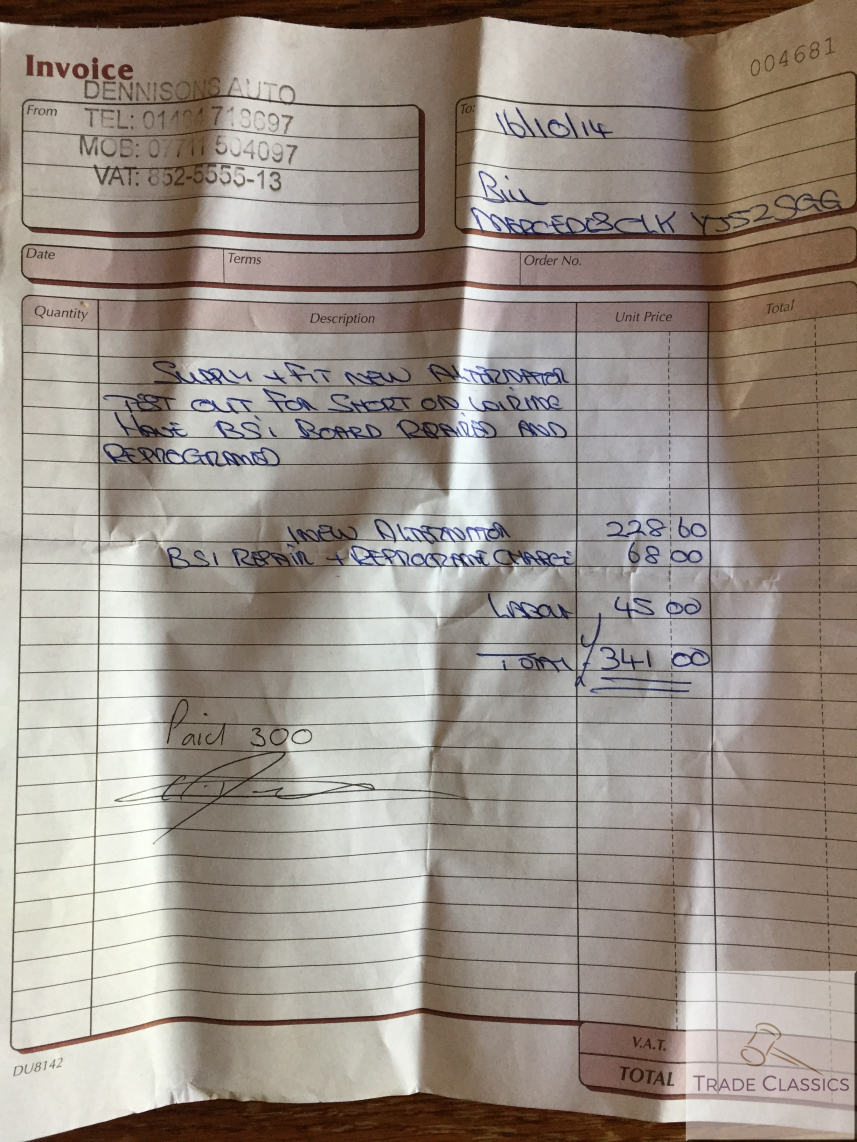 Invoice
004681
DENNISONS AUTO
From
TEL: 01484 718697
MOB: 07711 504097
VAT: 852-5555-13
To:
16/10/14
Bill
MERCEDES CLK YJ52SGG
Date
Terms
Order No.
Quantity
Description
Unit Price
Total
SUPPLY + FIT NEW ALTERNATOR
TEST OUT FOR SHORT ON WIRING
HAVE BSI BOARD RPAIRED AND
REPROGRAMED
1 NEW ALTERNATOR 228 60
BSI REPAIR + REPROGRAME CHARGE 68 00
LABOUR 45 00
TOTAL £341 00
Paid 300
V.A.T.
TOTAL
DU8142
TRADE CLASSICS